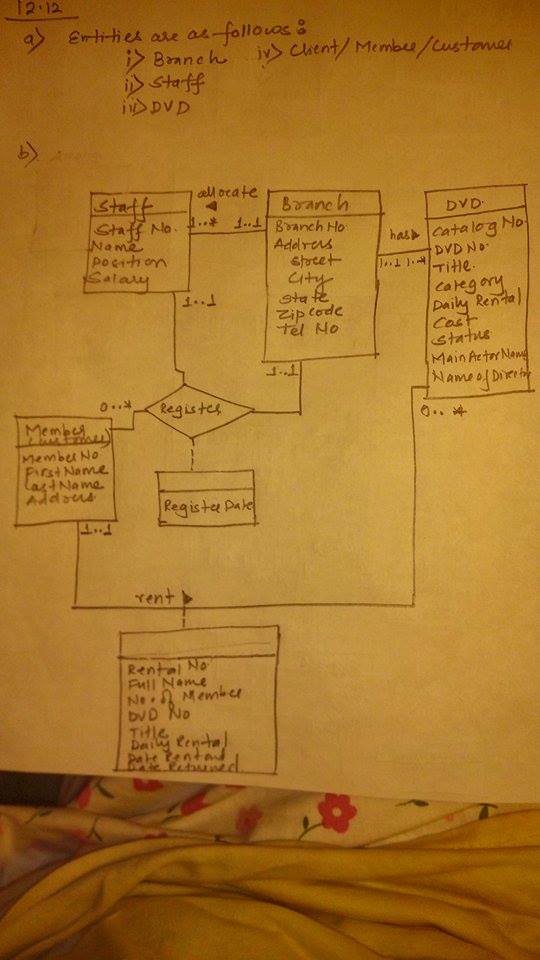 12.12
a) Entities are as follows:
i) Branch iv) Client/Member/Customer
ii) Staff
iii) DVD
b)
Staff
Staff No.
Name
Position
Salary
allocate
1..* 1..1
Branch
Branch No
Address
Street
City
State
Zip code
Tel No
has
1..1 1..*
DVD
Catalog No
DVD No.
Title.
Category
Daily Rental
Cost
Status
Main Actor Name
Name of Director
1..1
1..1
0..*
0..*
Register
Member
(customer)
Member No
First Name
Last Name
Address
Register Date
1..1
rent
Rental No
Full Name
No. of Member
DVD No
Title
Daily Rental
Date Rented
Date Returned